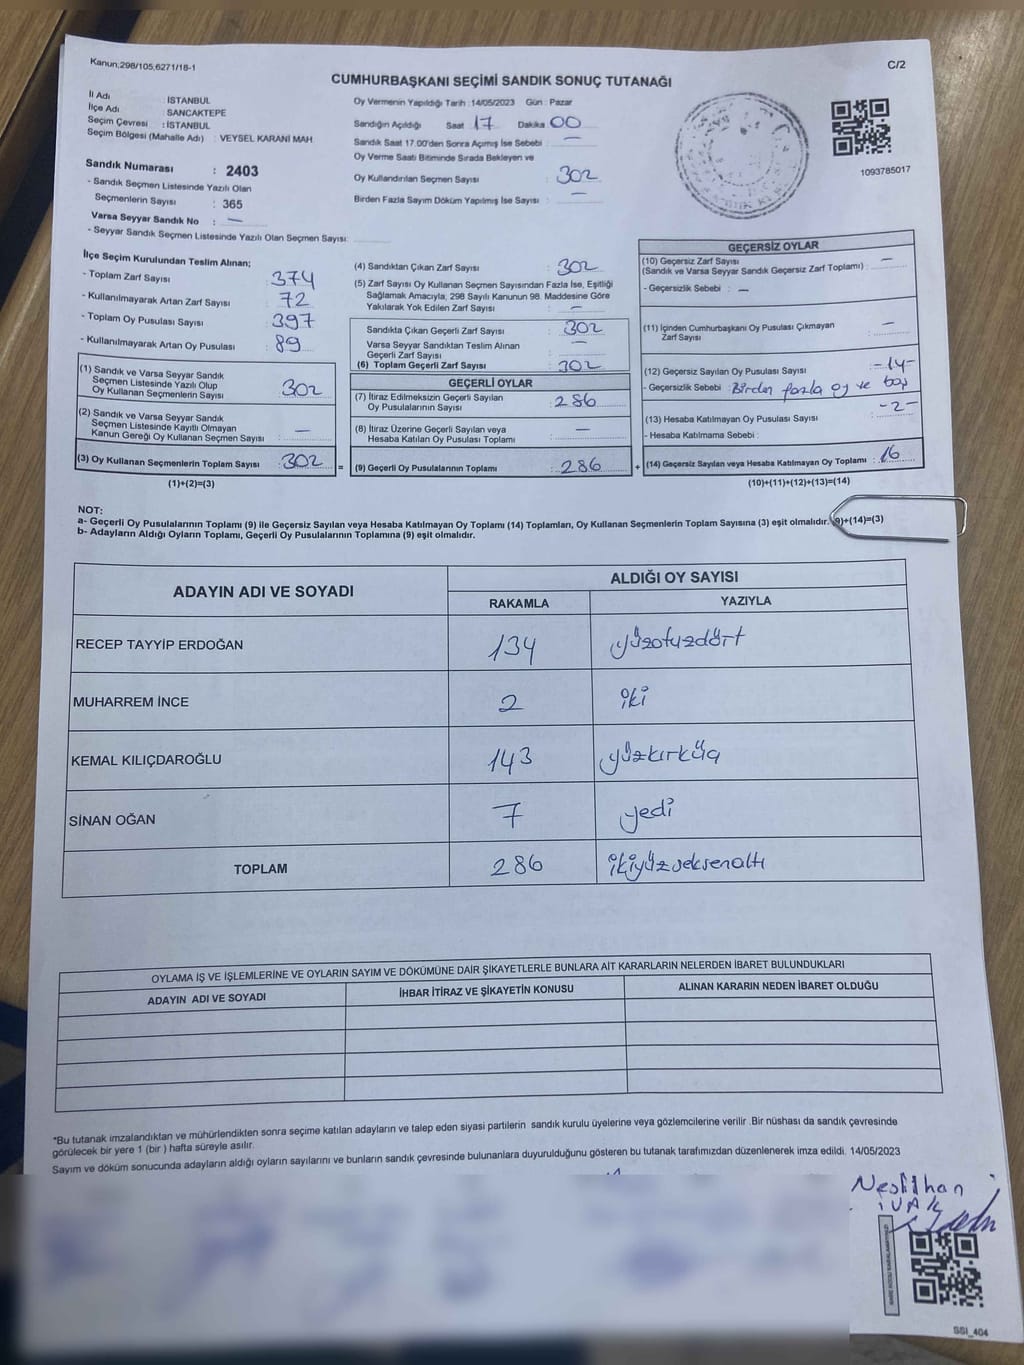 Kanun,298/105,6271/18-1
C/2
CUMHURBAŞKANI SEÇİMİ SANDIK SONUÇ TUTANAĞI
İl Adı İSTANBUL
İlçe Adı : SANCAKTEPE
Seçim Çevresi : İSTANBUL
Seçim Bölgesi (Mahalle Adı) : VEYSEL KARANİ MAH
Sandık Numarası : 2403
- Sandık Seçmen Listesinde Yazılı Olan
Seçmenlerin Sayısı : 365
Varsa Seyyar Sandık No : —
- Seyyar Sandık Seçmen Listesinde Yazılı Olan Seçmen Sayısı:
Oy Vermenin Yapıldığı Tarih :14/05/2023 Gün : Pazar
Sandığın Açıldığı Saat 17 Dakika 00
Sandık Saat 17.00'den Sonra Açımış İse Sebebi : —
Oy Verme Saati Bitiminde Sırada Bekleyen ve
Oy Kullandırılan Seçmen Sayısı : 302
Birden Fazla Sayım Döküm Yapılmış İse Sayısı : —
1093785017
İlçe Seçim Kurulundan Teslim Alınan;
- Toplam Zarf Sayısı : 374
- Kullanılmayarak Artan Zarf Sayısı : 72
- Toplam Oy Pusulası Sayısı : 397
- Kullanılmayarak Artan Oy Pusulası : 89
(1) Sandık ve Varsa Seyyar Sandık
Seçmen Listesinde Yazılı Olup
Oy Kullanan Seçmenlerin Sayısı : 302
(2) Sandık ve Varsa Seyyar Sandık
Seçmen Listesinde Kayıtlı Olmayan
Kanun Gereği Oy Kullanan Seçmen Sayısı : —
(3) Oy Kullanan Seçmenlerin Toplam Sayısı : 302 =
(1)+(2)=(3)
(4) Sandıktan Çıkan Zarf Sayısı : 302
(5) Zarf Sayısı Oy Kullanan Seçmen Sayısından Fazla İse, Eşitliği
Sağlamak Amacıyla, 298 Sayılı Kanunun 98. Maddesine Göre
Yakılarak Yok Edilen Zarf Sayısı : —
Sandıkta Çıkan Geçerli Zarf Sayısı : 302
Varsa Seyyar Sandıktan Teslim Alınan
Geçerli Zarf Sayısı : —
(6) Toplam Geçerli Zarf Sayısı : 302
GEÇERLİ OYLAR
(7) İtiraz Edilmeksizin Geçerli Sayılan
Oy Pusulalarının Sayısı : 286
(8) İtiraz Üzerine Geçerli Sayılan veya
Hesaba Katılan Oy Pusulası Toplamı : —
(9) Geçerli Oy Pusulalarının Toplamı : 286 +
GEÇERSİZ OYLAR
(10) Geçersiz Zarf Sayısı
(Sandık ve Varsa Seyyar Sandık Geçersiz Zarf Toplamı) : —
- Geçersizlik Sebebi : —
(11) İçinden Cumhurbaşkanı Oy Pusulası Çıkmayan
Zarf Sayısı : —
(12) Geçersiz Sayılan Oy Pusulası Sayısı : -14-
- Geçersizlik Sebebi : Birden fazla oy ve boş
(13) Hesaba Katılmayan Oy Pusulası Sayısı : -2-
- Hesaba Katılmama Sebebi :
(14) Geçersiz Sayılan veya Hesaba Katılmayan Oy Toplamı : 16
(10)+(11)+(12)+(13)=(14)
NOT:
a- Geçerli Oy Pusulalarının Toplamı (9) ile Geçersiz Sayılan veya Hesaba Katılmayan Oy Toplamı (14) Toplamları, Oy Kullanan Seçmenlerin Toplam Sayısına (3) eşit olmalıdır. (9)+(14)=(3)
b- Adayların Aldığı Oyların Toplamı, Geçerli Oy Pusulalarının Toplamına (9) eşit olmalıdır.
ADAYIN ADI VE SOYADI ALDIĞI OY SAYISI
RAKAMLA YAZIYLA
RECEP TAYYİP ERDOĞAN 134 yüzotuzdört
MUHARREM İNCE 2 iki
KEMAL KILIÇDAROĞLU 143 yüzkırküç
SİNAN OĞAN 7 yedi
TOPLAM 286 ikiyüzseksenaltı
OYLAMA İŞ VE İŞLEMLERİNE VE OYLARIN SAYIM VE DÖKÜMÜNE DAİR ŞİKAYETLERLE BUNLARA AİT KARARLARIN NELERDEN İBARET BULUNDUKLARI
ADAYIN ADI VE SOYADI İHBAR İTİRAZ VE ŞİKAYETİN KONUSU ALINAN KARARIN NEDEN İBARET OLDUĞU
*Bu tutanak imzalandıktan ve mühürlendikten sonra seçime katılan adayların ve talep eden siyasi partilerin sandık kurulu üyelerine veya gözlemcilerine verilir .Bir nüshası da sandık çevresinde
görülecek bir yere 1 (bir ) hafta süreyle asılır.
Sayım ve döküm sonucunda adayların aldığı oyların sayılarını ve bunların sandık çevresinde bulunanlara duyurulduğunu gösteren bu tutanak tarafımızdan düzenlenerek imza edildi. 14/05/2023
Neslihan
SSI_404